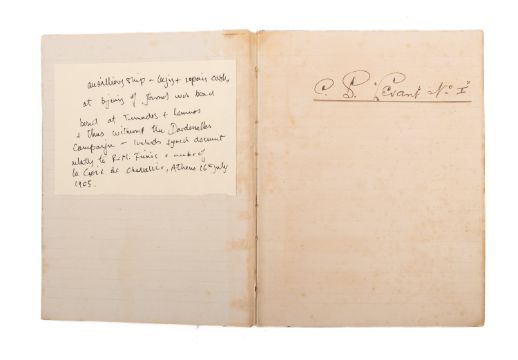 auxilliary ship – lays + repair cable,
at of was based
based at Tenedos + Lemnos
+ thus witnessed the Dardanelles
Campaign – includes signed document
relating to R.M. + order of
la Croix de Chevalier, Athens 16th July
1905.
C. S. "Levant No I"